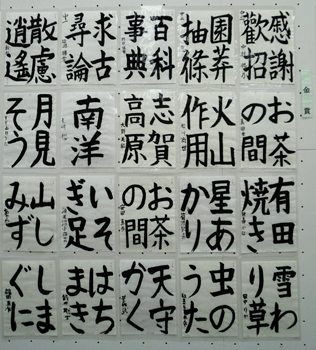 金賞
感謝
歡招
園莽
抽條
百科
事典
求古
尋論
散慮
逍遙
お茶
の間
火山
作用
志賀
高原
南洋
月見
そう
有田
焼き
星あ
かり
お茶
の間
いそ
ぎ足
山し
みず
雪わ
り草
虫の
うた
天守
かく
はち
まき
しま
ぐに